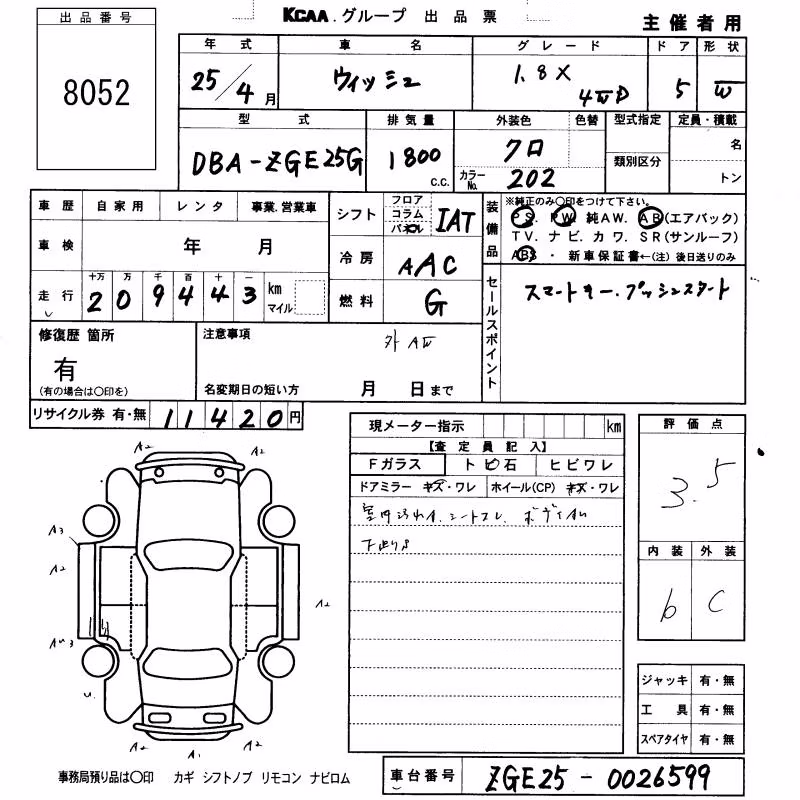 出品番号
8052
KCAA.グループ 出品票
主催者用
年式 車名 グレード ドア 形状
25/4月 ウィッシュ 1.8X 4WD 5 W
型式 排気量 外装色 色替 型式指定 定員・積載
DBA-ZGE25G 1800 c.c. クロ 類別区分 名
カラーNo. 202 トン
車歴 自家用 レンタ 事業.営業車
車検 年 月
走行 十万 万 千 百 十 一
209443 km マイル
シフト フロア コラム パネル IAT
冷房 AAC
燃料 G
装備品
※純正のみ〇印をつけて下さい。
PS. PW 純AW. AB(エアバック)
TV.ナビ.カワ.SR(サンルーフ)
ABS・新車保証書←(注)後日送りのみ
セールスポイント
スマートキー.プッシュスタート
修復歴 箇所
有
(有の場合は〇印を)
注意事項
外AW
名変期日の短い方 月 日まで
リサイクル券 有・無 11420円
現メーター指示 km
【査定員記入】
Fガラス トビ石 ヒビワレ
ドアミラー キズ・ワレ ホイール(CP) キズ・ワレ
室内汚れA.シートスレ.
下廻りS
評価点
3.5
内装 外装
b C
A2 A2
A3
A2
A2
U.
A2 A1 A2
ジャッキ 有・無
工具 有・無
スペアタイヤ 有・無
事務局預り品は〇印 カギ シフトノブ リモコン ナビロム
車台番号 ZGE25-0026599